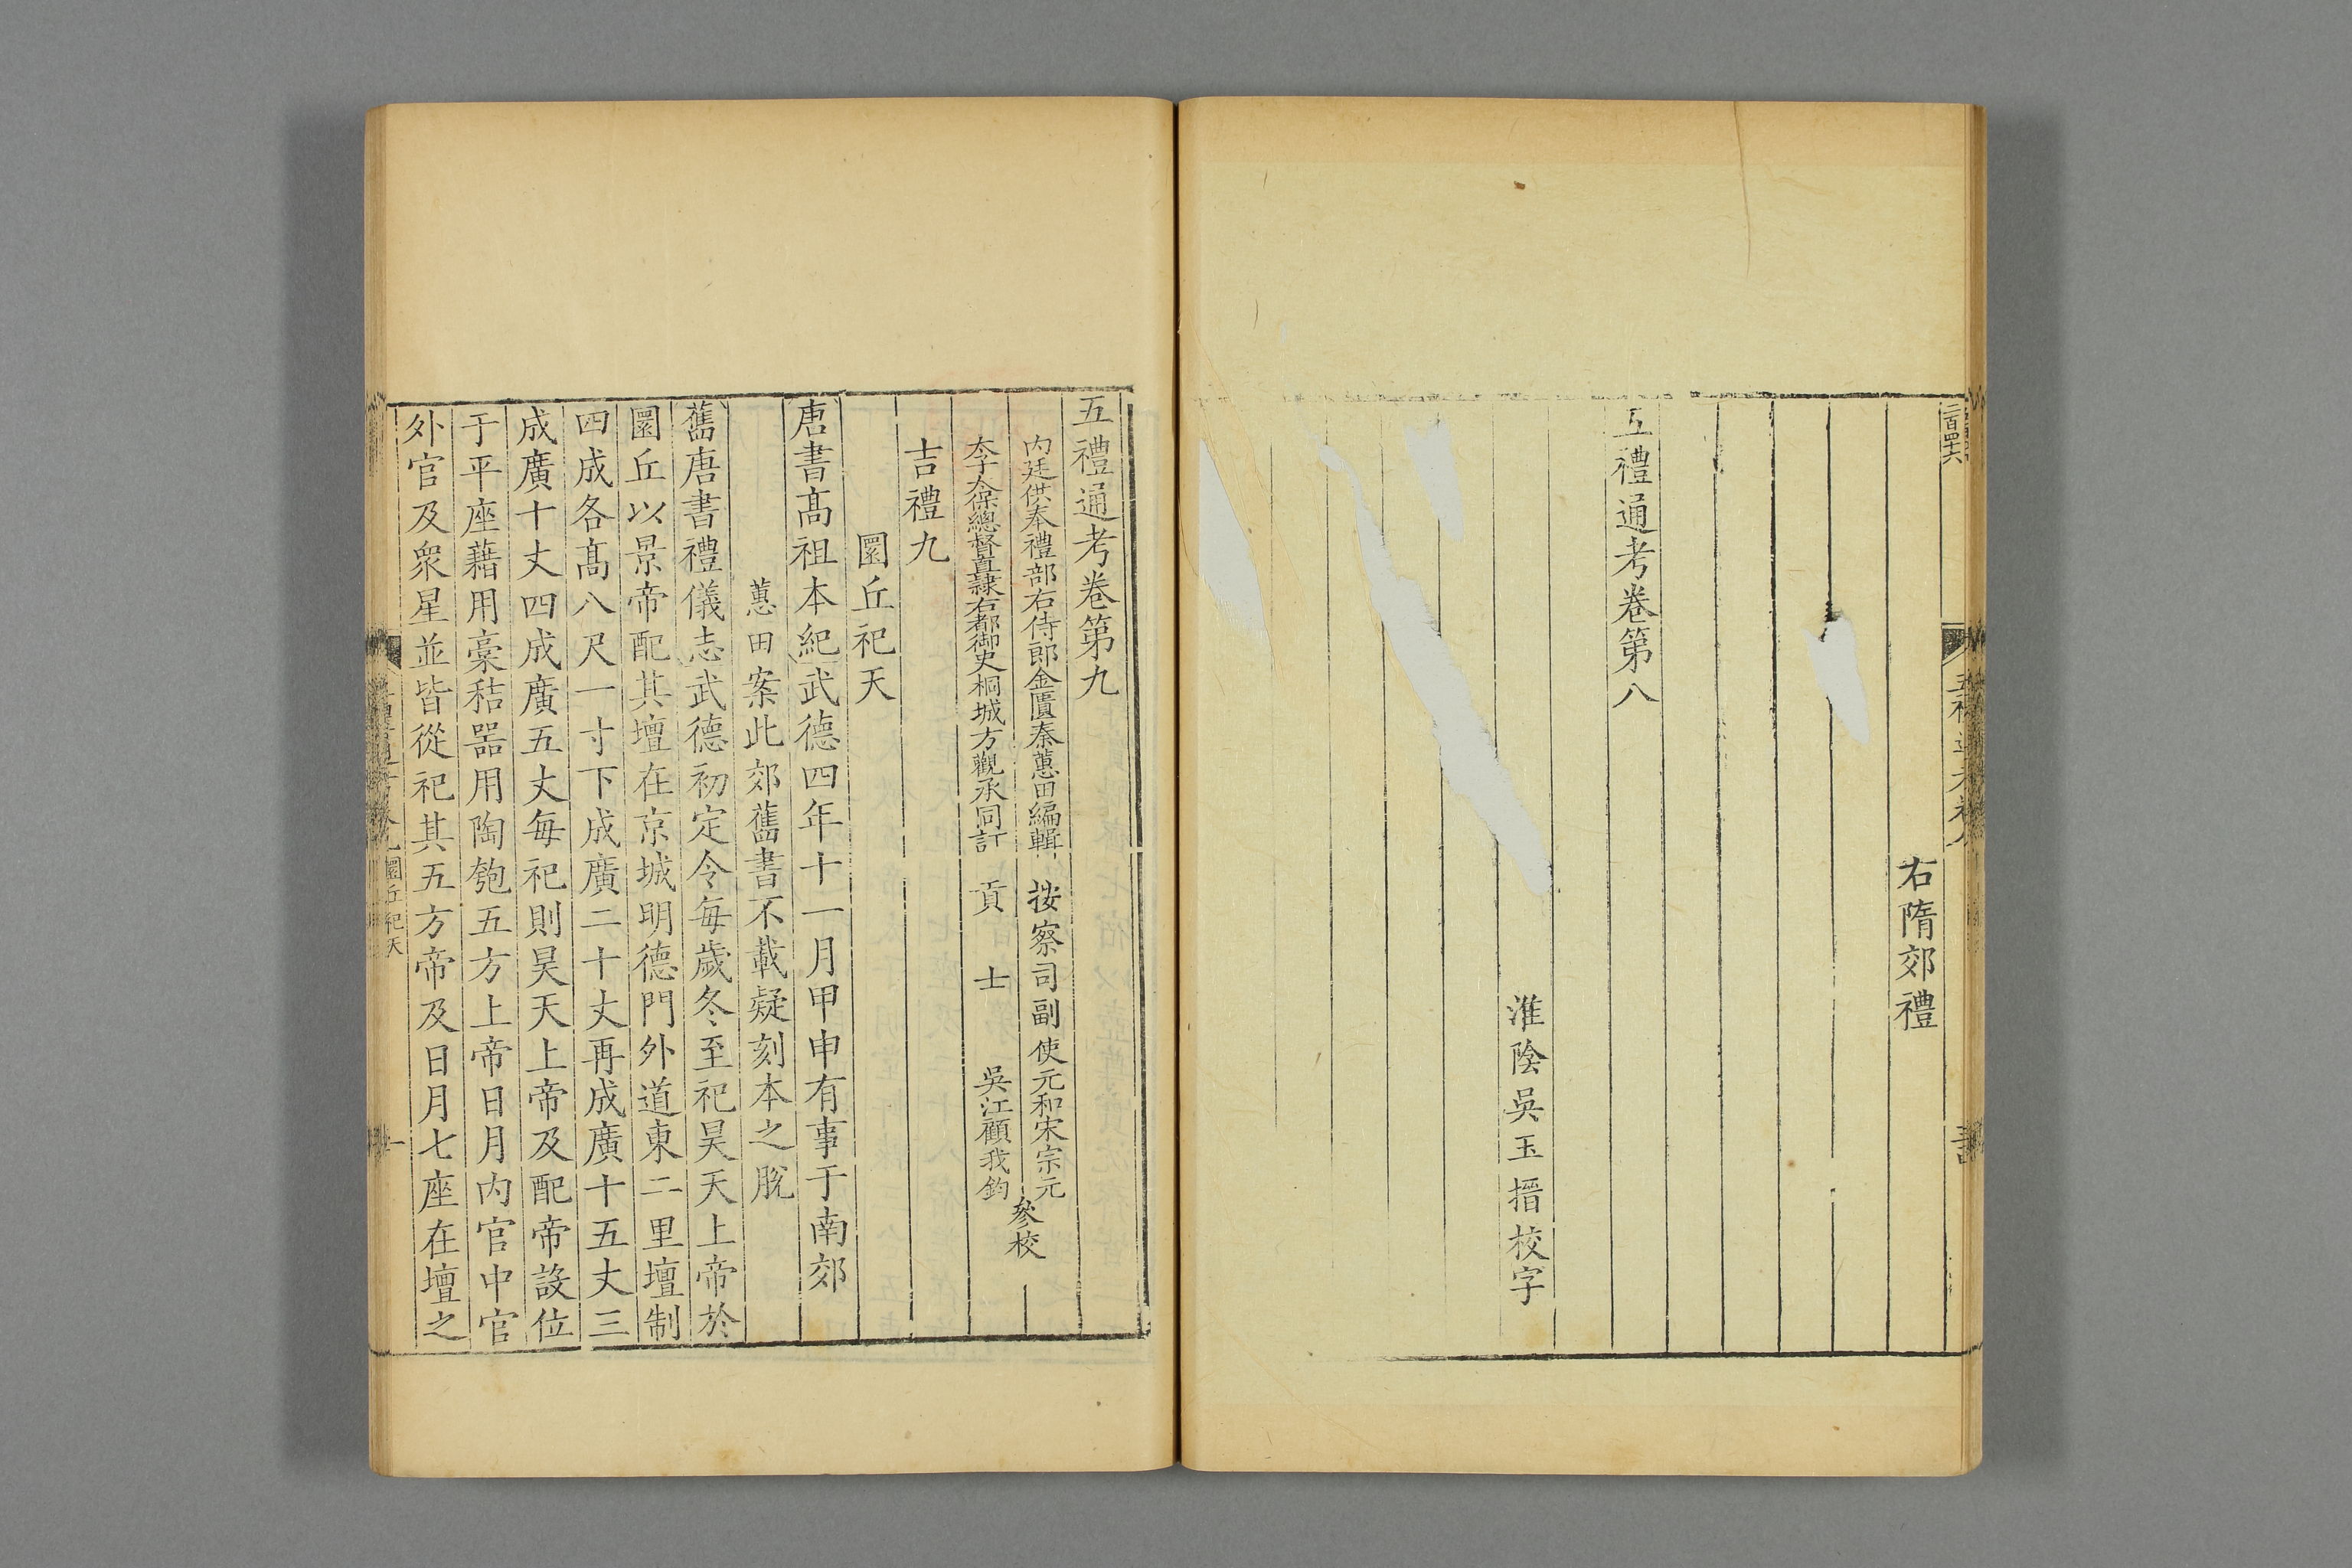 右隋郊禮
五禮通考卷第八
淮陰吳玉搢校字
五禮通考卷第九
內廷供奉禮部右侍郎金匱秦蕙田編輯 按察司副使元和宋宗元
太子太保總督直隸右都御史桐城方觀承同訂 貢士 吳江顧我鈞
參校
吉禮九
圜丘祀天
唐書高祖本紀武德四年十一月甲申有事于南郊
蕙田案此郊舊書不載疑刻本之脫
舊唐書禮儀志武德初定令每歲冬至祀昊天上帝於
圜丘以景帝配其壇在京城明德門外道東二里壇制
四成各高八尺一寸下成廣二十丈再成廣十五丈三
成廣十丈四成廣五丈每祀則昊天上帝及配帝設位
于平座藉用稾秸器用陶匏五方上帝日月內官中官
外官及衆星並皆從祀其五方帝及日月七座在壇之
圜丘祀天